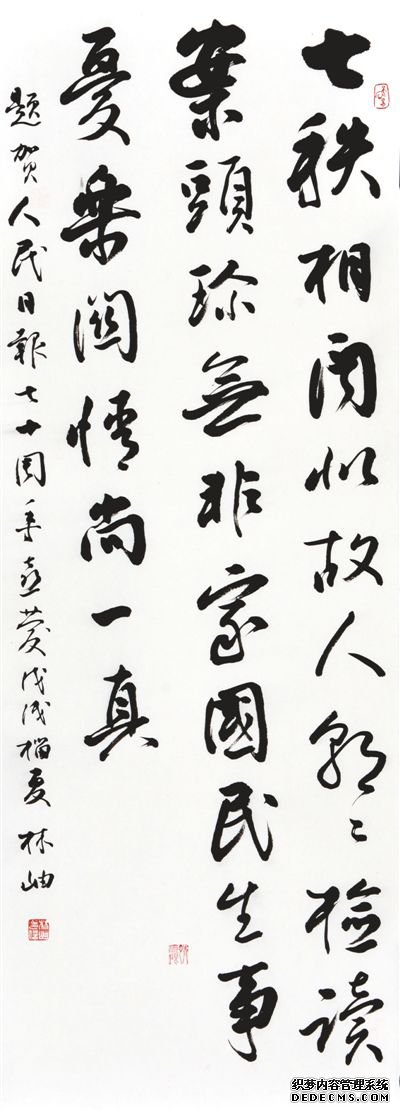 七秩相聞似故人朝〻檢讀
案頭珍無非家國民生事
憂樂關情尚一真
題賀人民日報七十周年喜慶戊戌榴夏林岫
织梦内容管理系统
DEDECMS.COM